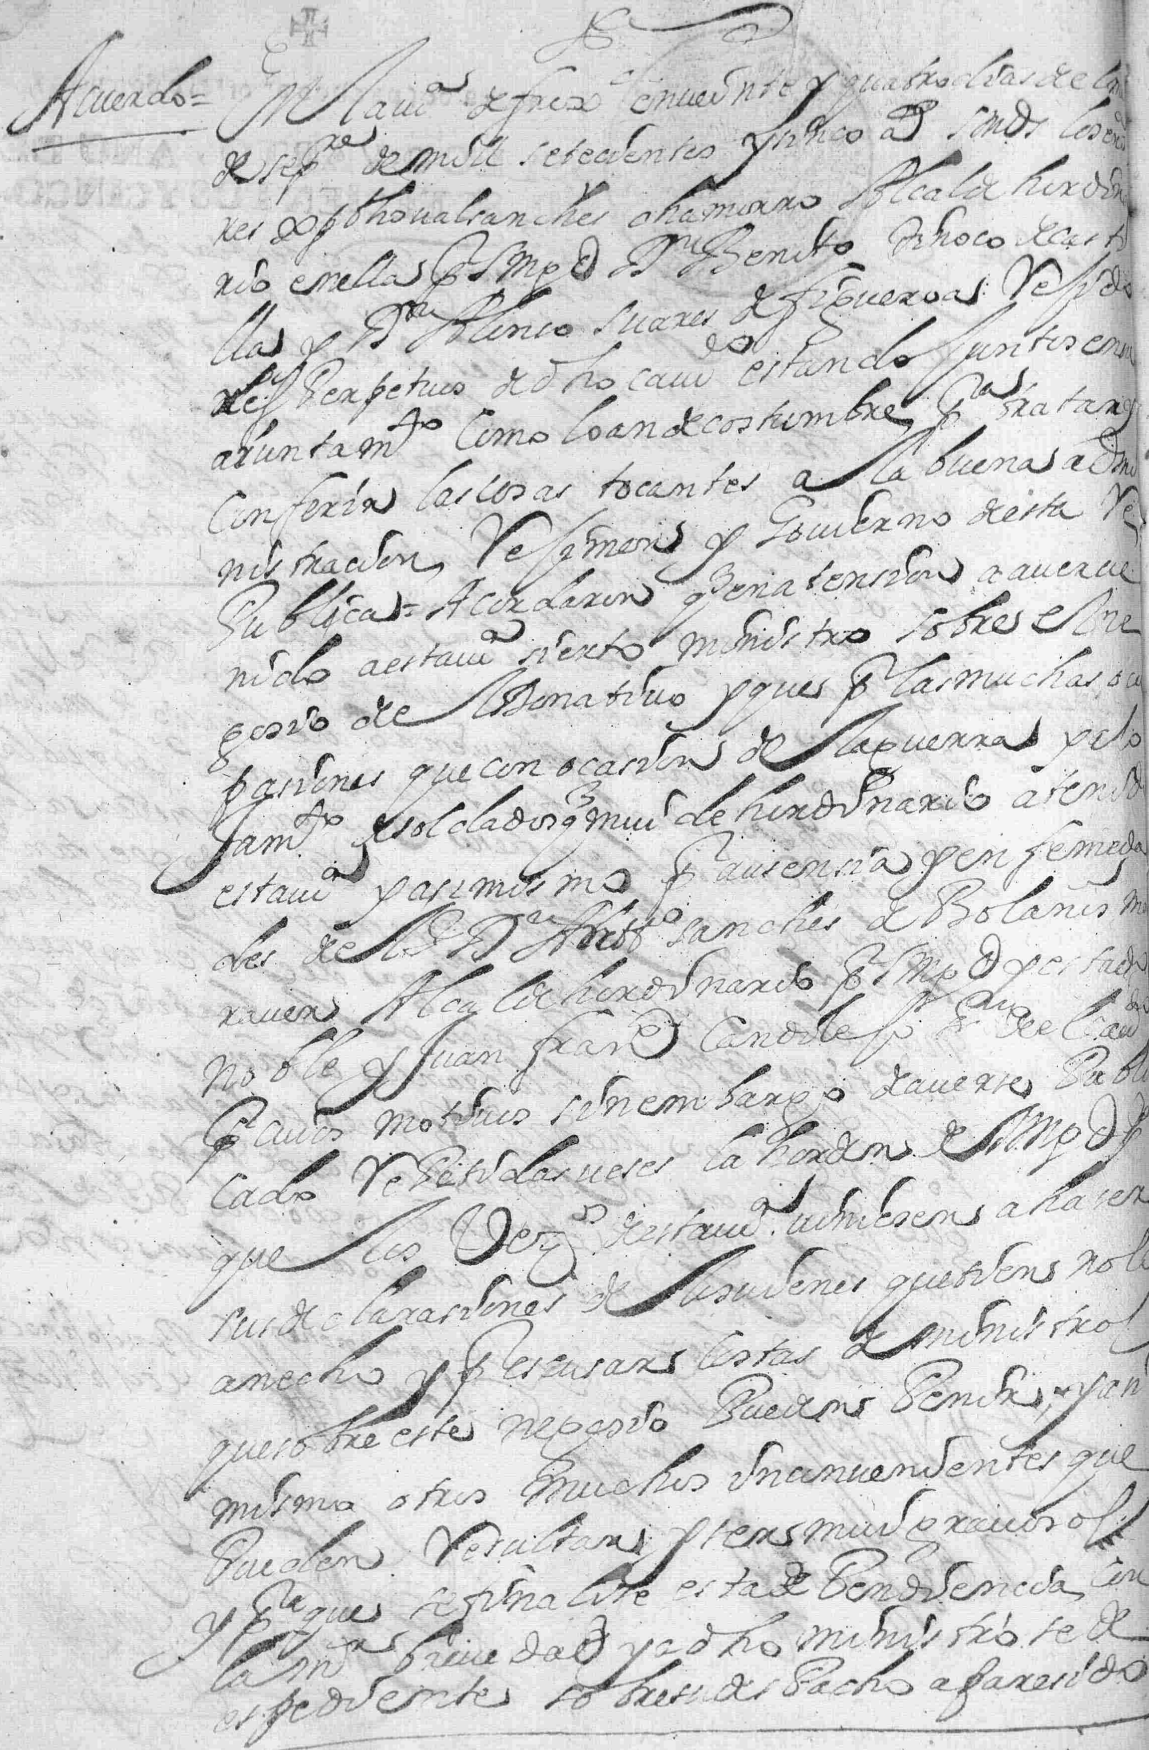 Acuerdo =
En la ciud de frexl en veinte y quatro dias de
de sepre de mill setecientos y sinco as sus mds los seño
res Xptoual sanches chamorro Alcalde hordina
rio en ella pr su Mgd Dn Benito de
lla y Dn Alonso Suares de figueroa Residores
Perpetuos de dho cauo estando Juntos en su
aiuntamto como lo an de costumbre pa tratar y
Conferir las cosas tocantes a la buena admi
nistracion Regimen y Gouierno desta Re
Publica = Acordaron q en atension a auer ve
nido a esta ciud sierto ministro sobre el ne
gosio de el Donatiuo y que pr las muchas ocu
pasiones que con ocasion de la guerra y alo
Jamto de soldados q mui de hordinario a tenido
esta ciud y asimismo pr ausensia y enfermeda
des de el Sr Dn sanches de Bolaños
Alcalde hordinario pr su Mgd y estado
noble y Juan franco Candilejo de el cauo
pr cuios motiuos sin embargo de auerse Publi
cado Repetidas ueses la horden de su Mgd pa
que los Vezos desta ciud uiniesen a haser
sus declarasiones de los uienes que tienen no lo
an echo y pr escusar costas de ministros
que sobre este negosio Pueden Benir y an
mismo otros muchos incanuenientes que
Pueden Resultar y ser mui grauosos
y pa que se finalise esta Dependiencia con
la mor breuedad y a dho ministro se de
espediente sobre su desPacho a Paresido